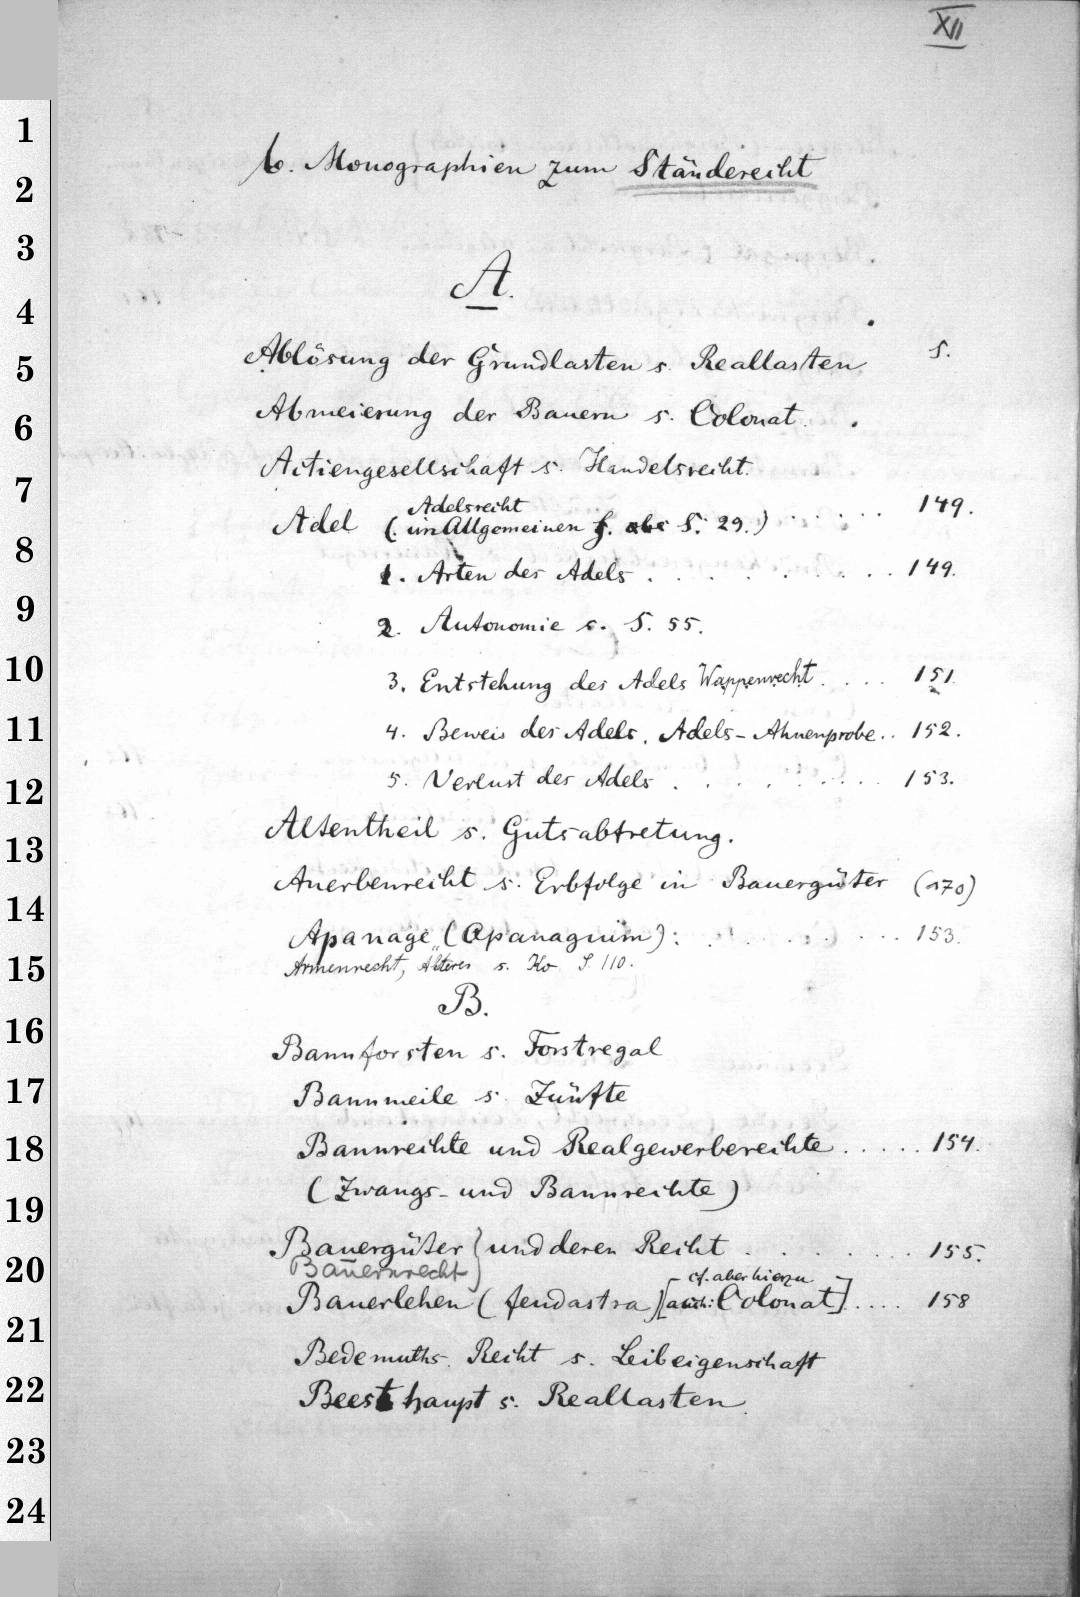 XII
1
2
3
4
5
6
7
8
9
10
11
12
13
14
15
16
17
18
19
20
21
22
23
24
b. Monographien zum Ständerecht
A.
S.
Ablösung der Grundlasten s. Reallasten
Abmeierung der Bauern s. Colonat.
Actiengesellschaft s. Handelsrecht.
Adelsrecht
Adel (im Allgemeinen S. 29.) . . . . . . 149.
1. Arten des Adels . . . . . . . . 149.
2. Autonomie s. S. 55.
3. Entstehung des Adels Wappenrecht . . . . 151.
4. Beweis des Adels. Adels-Ahnenprobe . . 152.
5. Verlust des Adels . . . . . . . . 153.
Altentheil s. Gutsabtretung.
Anerbenrecht s. Erbfolge in Bauergüter (170)
Apanage (Apanagium): . . . . . . . 153.
Armenrecht, Älteres s. Ko S. 110.
B.
Bannforsten s. Forstregal
Bannmeile s. Zünfte
Bannrechte und Realgewerberechte . . . . . 154.
(Zwangs- und Bannrechte)
Bauergüter } und deren Recht . . . . . . . 155.
Bauernrecht
cf. aber hierzu
Bauerlehen (feudastra) [auch: Colonat] . . . . 158
Bedemuths. Recht s. Leibeigenschaft
Beesthaupt s. Reallasten.